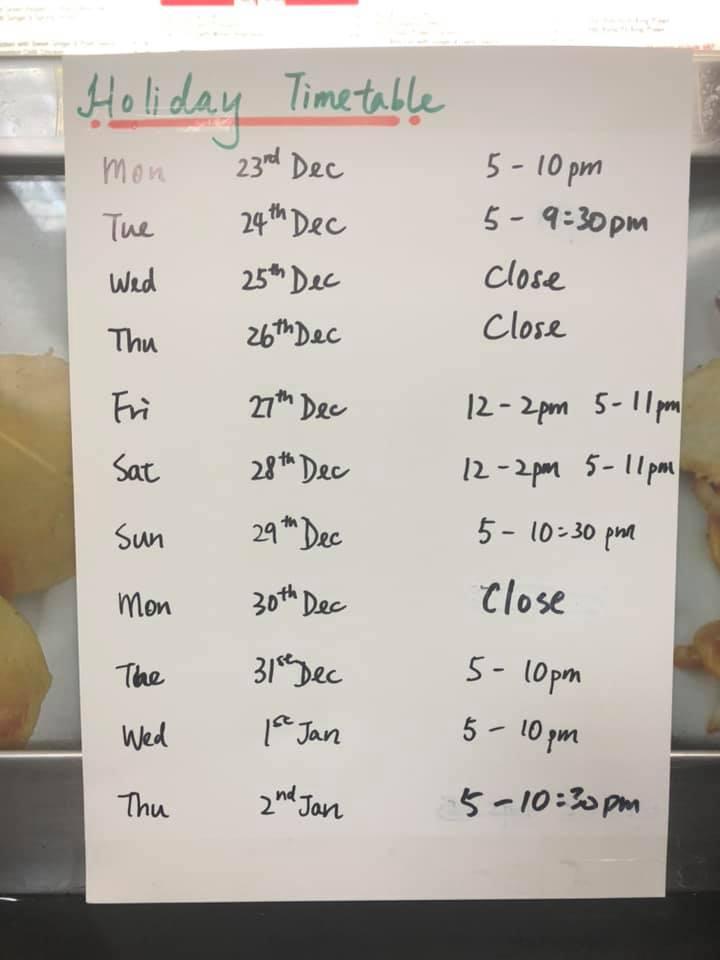 Holiday Timetable
Mon 23rd Dec 5 - 10pm
Tue 24th Dec 5 - 9:30pm
Wed 25th Dec Close
Thu 26th Dec Close
Fri 27th Dec 12 - 2pm 5 - 11pm
Sat 28th Dec 12 - 2pm 5 - 11pm
Sun 29th Dec 5 - 10:30 pm
Mon 30th Dec Close
Tue 31st Dec 5 - 10pm
Wed 1st Jan 5 - 10pm
Thu 2nd Jan 5 - 10:30pm